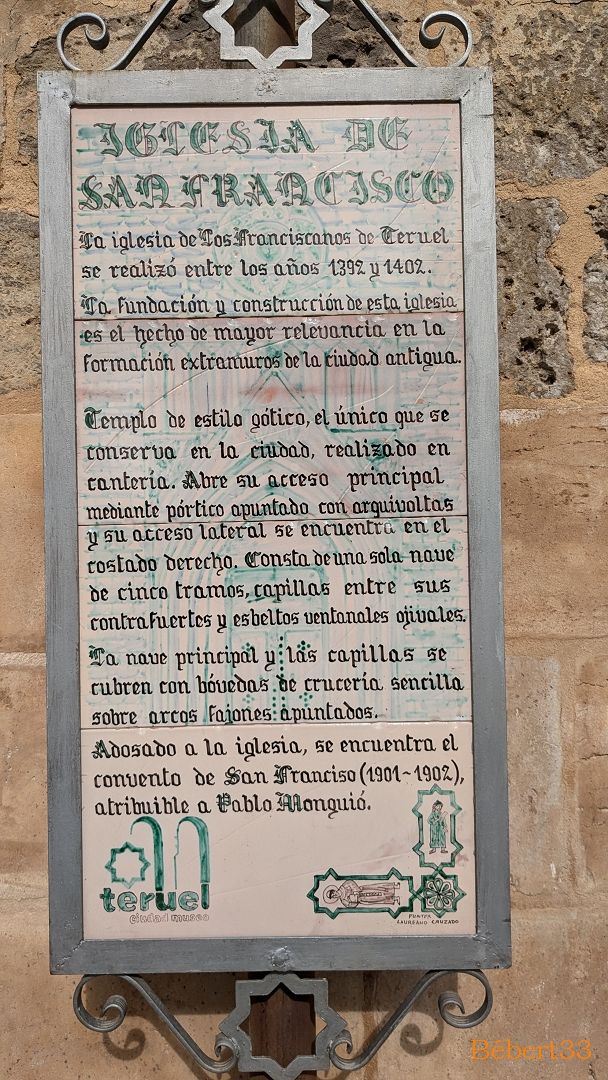 IGLESIA DE
SAN FRANCISCO
La iglesia de Los Franciscanos de Teruel
se realizó entre los años 1392 y 1402.
La fundación y construcción de esta iglesia
es el hecho de mayor relevancia en la
formación extramuros de la ciudad antigua.
Templo de estilo gótico, el único que se
conserva en la ciudad, realizado en
cantería. Abre su acceso principal
mediante pórtico apuntado con arquivoltas
y su acceso lateral se encuentra en el
costado derecho. Consta de una sola nave
de cinco tramos, capillas entre sus
contrafuertes y esbeltos ventanales ojivales.
La nave principal y las capillas se
cubren con bóvedas de crucería sencilla
sobre arcos fajones apuntados.
Adosado a la iglesia, se encuentra el
convento de San Franciso (1901-1902),
atribuible a Pablo Monguió.
teruel
ciudad museo
PUNTER
LAUREANO CRUZADO
Bébert33